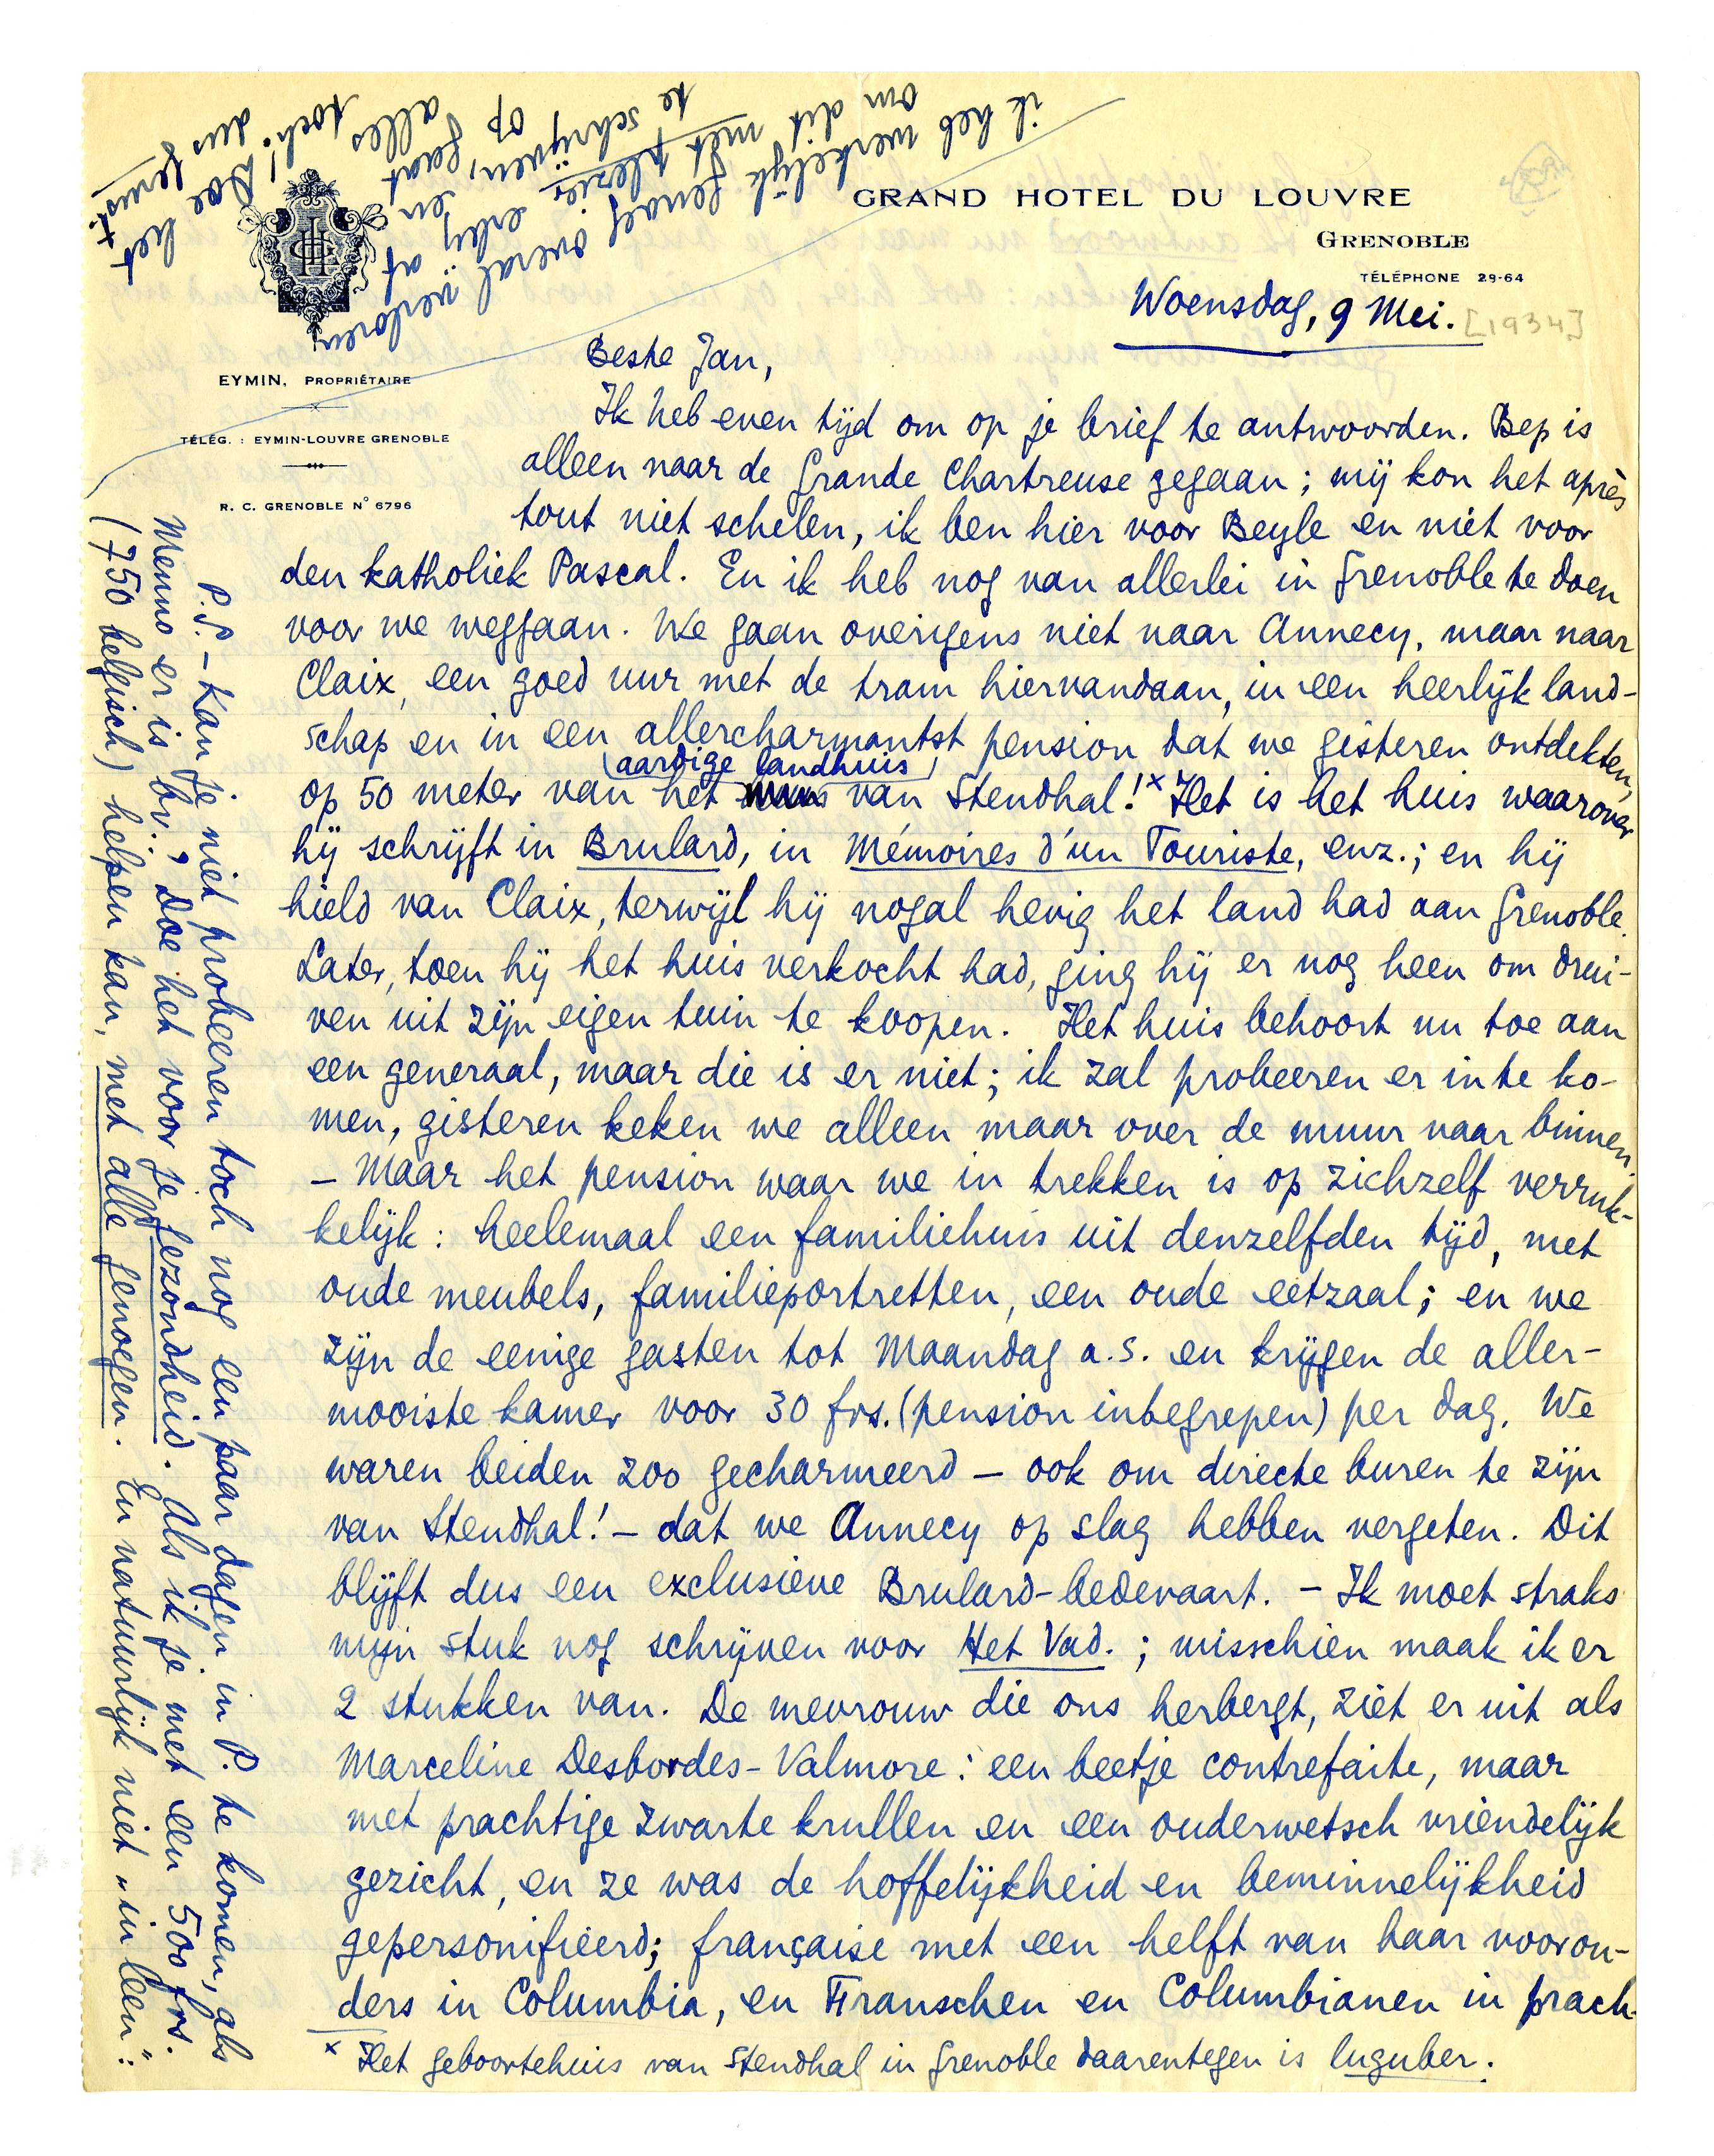 GRAND HOTEL DU LOUVRE
GRENOBLE
TÉLÉPHONE 29-64
EYMIN, PROPRIÉTAIRE
TÉLÉG. : EYMIN-LOUVRE GRENOBLE
R. C. GRENOBLE N° 6796
Woensdag, 9 Mei. [1934]
Beste Jan,
Ik heb even tijd om op je brief te antwoorden. Bep is
alleen naar de Grande Chartreuse gegaan; mij kon het après
tout niet schelen, ik ben hier voor Beyle en niet voor
den katholiek Pascal. En ik heb nog van allerlei in Grenoble te doen
voor we weggaan. We gaan overigens niet naar Annecy, maar naar
Claix, een goed uur met de tram hiervandaan, in een heerlijk land-
schap en in een allercharmantst pension dat we gisteren ontdekten,
op 50 meter van het aardige landhuis van Stendhal!x Het is het huis waarover
hij schrijft in Brulard, in Mémoires d'un Touriste, enz.; en hij
hield van Claix, terwijl hij nogal hevig het land had aan Grenoble.
Later, toen hij het huis verkocht had, ging hij er nog heen om drui-
ven uit zijn eigen tuin te koopen. Het huis behoort nu toe aan
een generaal, maar die is er niet; ik zal probeeren er in te ko-
men, gisteren keken we alleen maar over de muur naar binnen.
– Maar het pension waar we in trekken is op zichzelf verruk-
kelijk: heelemaal een familiehuis uit denzelfden tijd, met
oude meubels, familieportretten, een oude eetzaal; en we
zijn de eenige gasten tot Maandag a.s. en krijgen de aller-
mooiste kamer voor 30 frs. (pension inbegrepen) per dag. We
waren beiden zoo gecharmeerd – ook om directe buren te zijn
van Stendhal! – dat we Annecy op slag hebben vergeten. Dit
blijft dus een exclusieve Brulard-bedevaart. – Ik moet straks
mijn stuk nog schrijven voor Het Vad.; misschien maak ik er
2 stukken van. De mevrouw die ons herbergt, ziet er uit als
Marceline Desbordes-Valmore: een beetje contrefaite, maar
met prachtige zwarte krullen en een ouderwetsch vriendelijk
gezicht, en ze was de hoffelijkheid en beminnelijkheid
gepersonifieerd; française met een helft van haar voorou-
ders in Columbia, en Franschen en Columbianen in prach-
x Het geboortehuis van Stendhal in Grenoble daarentegen is luguber.
P.S. – Kan je niet probeeren toch nog een paar dagen in P. te komen, als
Menno er is bv.; Doe het voor je gezondheid. Als ik je met een 500 frs.
(750 belgisch) helpen kan, met alle genoegen. En natuurlijk niet „in leen":
ik heb werkelijk genoeg overal verloren
om dit met plezier erbij af
te schrijven, gaat en
op alles toch! Doe het
dus gerust.